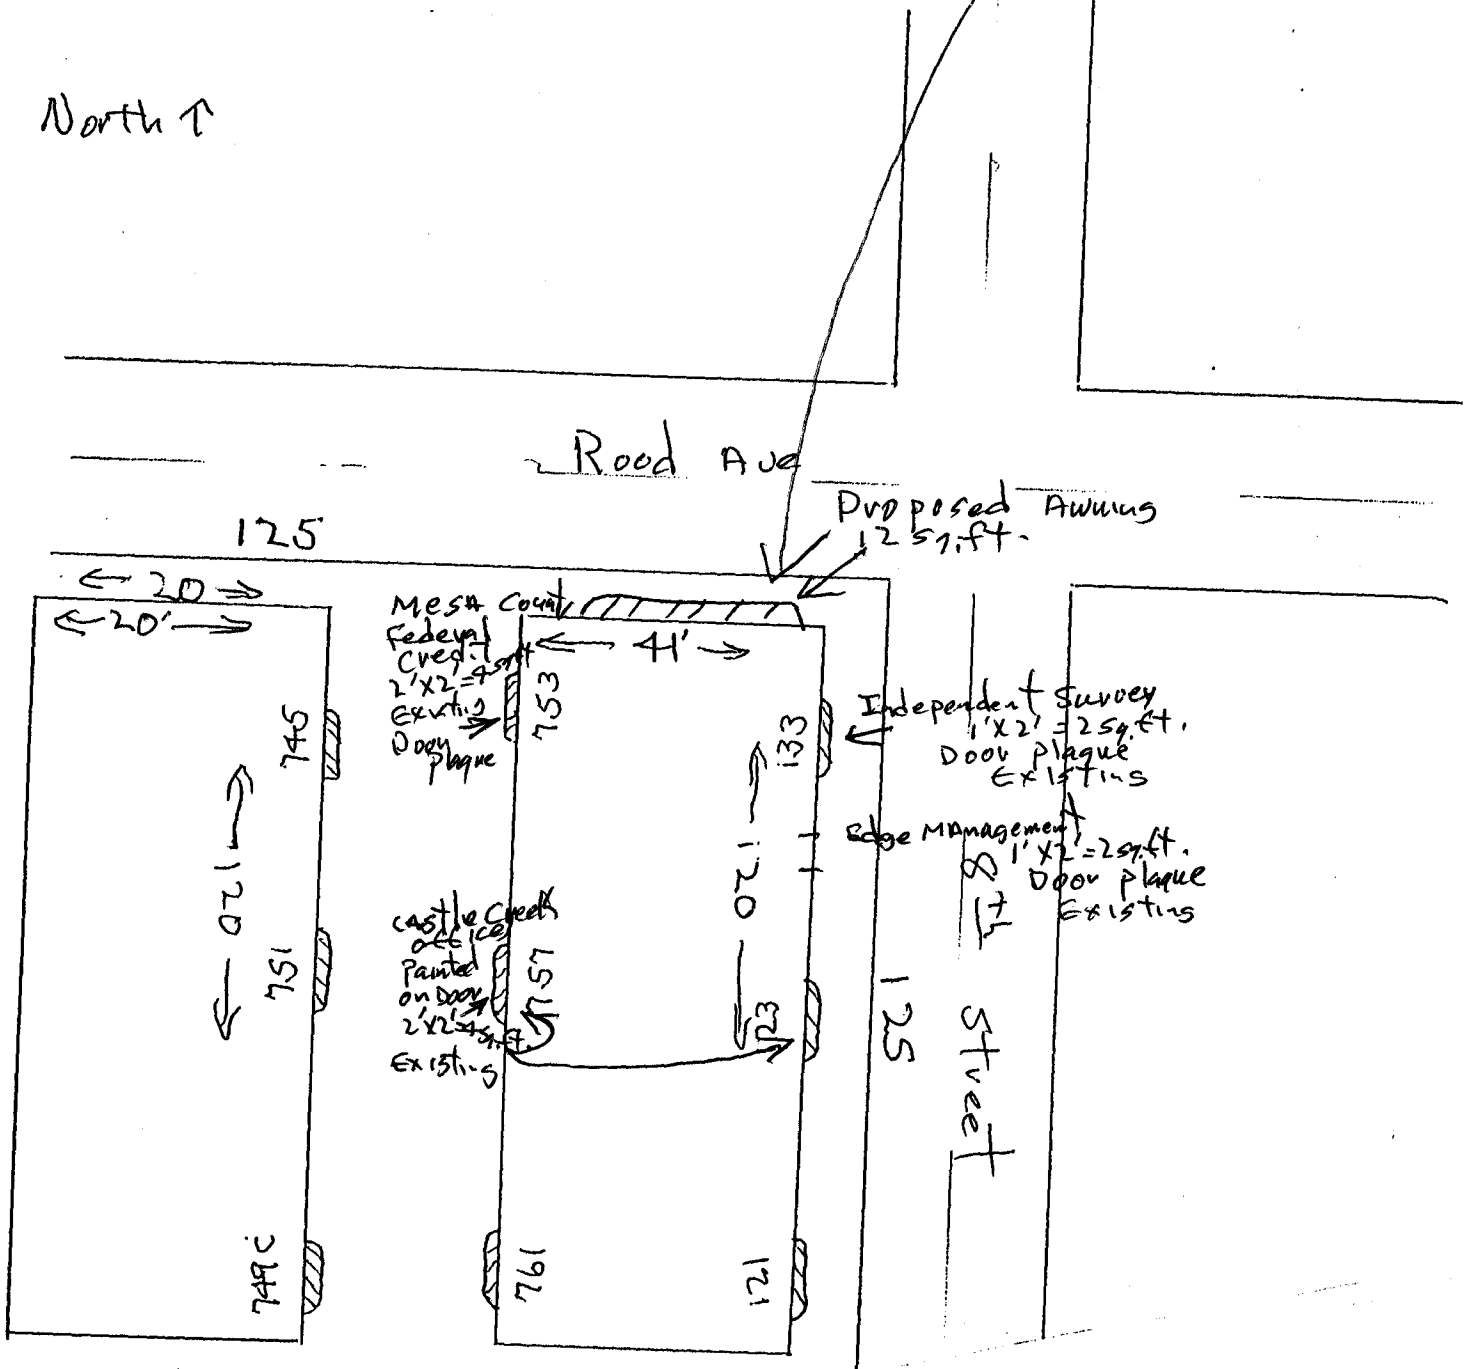 North ↑
Rood Ave
Proposed Awning
12 sq.ft.
125
← 20 →
← 20' →
Mesa County
Federal
Credit
2'x2'=4 sq ft
Existing
Door
plaque
← 41' →
745
753
133
Independent Survey
1'x2' = 2 sq.ft.
Door plaque
Existing
Edge Management
1'x2'=2 sq.ft.
Door plaque
Existing
← 120 →
← 120 →
8th Street
125
751
Castle Creek
offices
Painted
on Door
2'x2'=4 sq.ft.
Existing
757
123
749 C
761
121